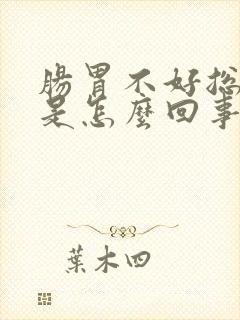 腸胃不好総
是怎麼回事
葉木四